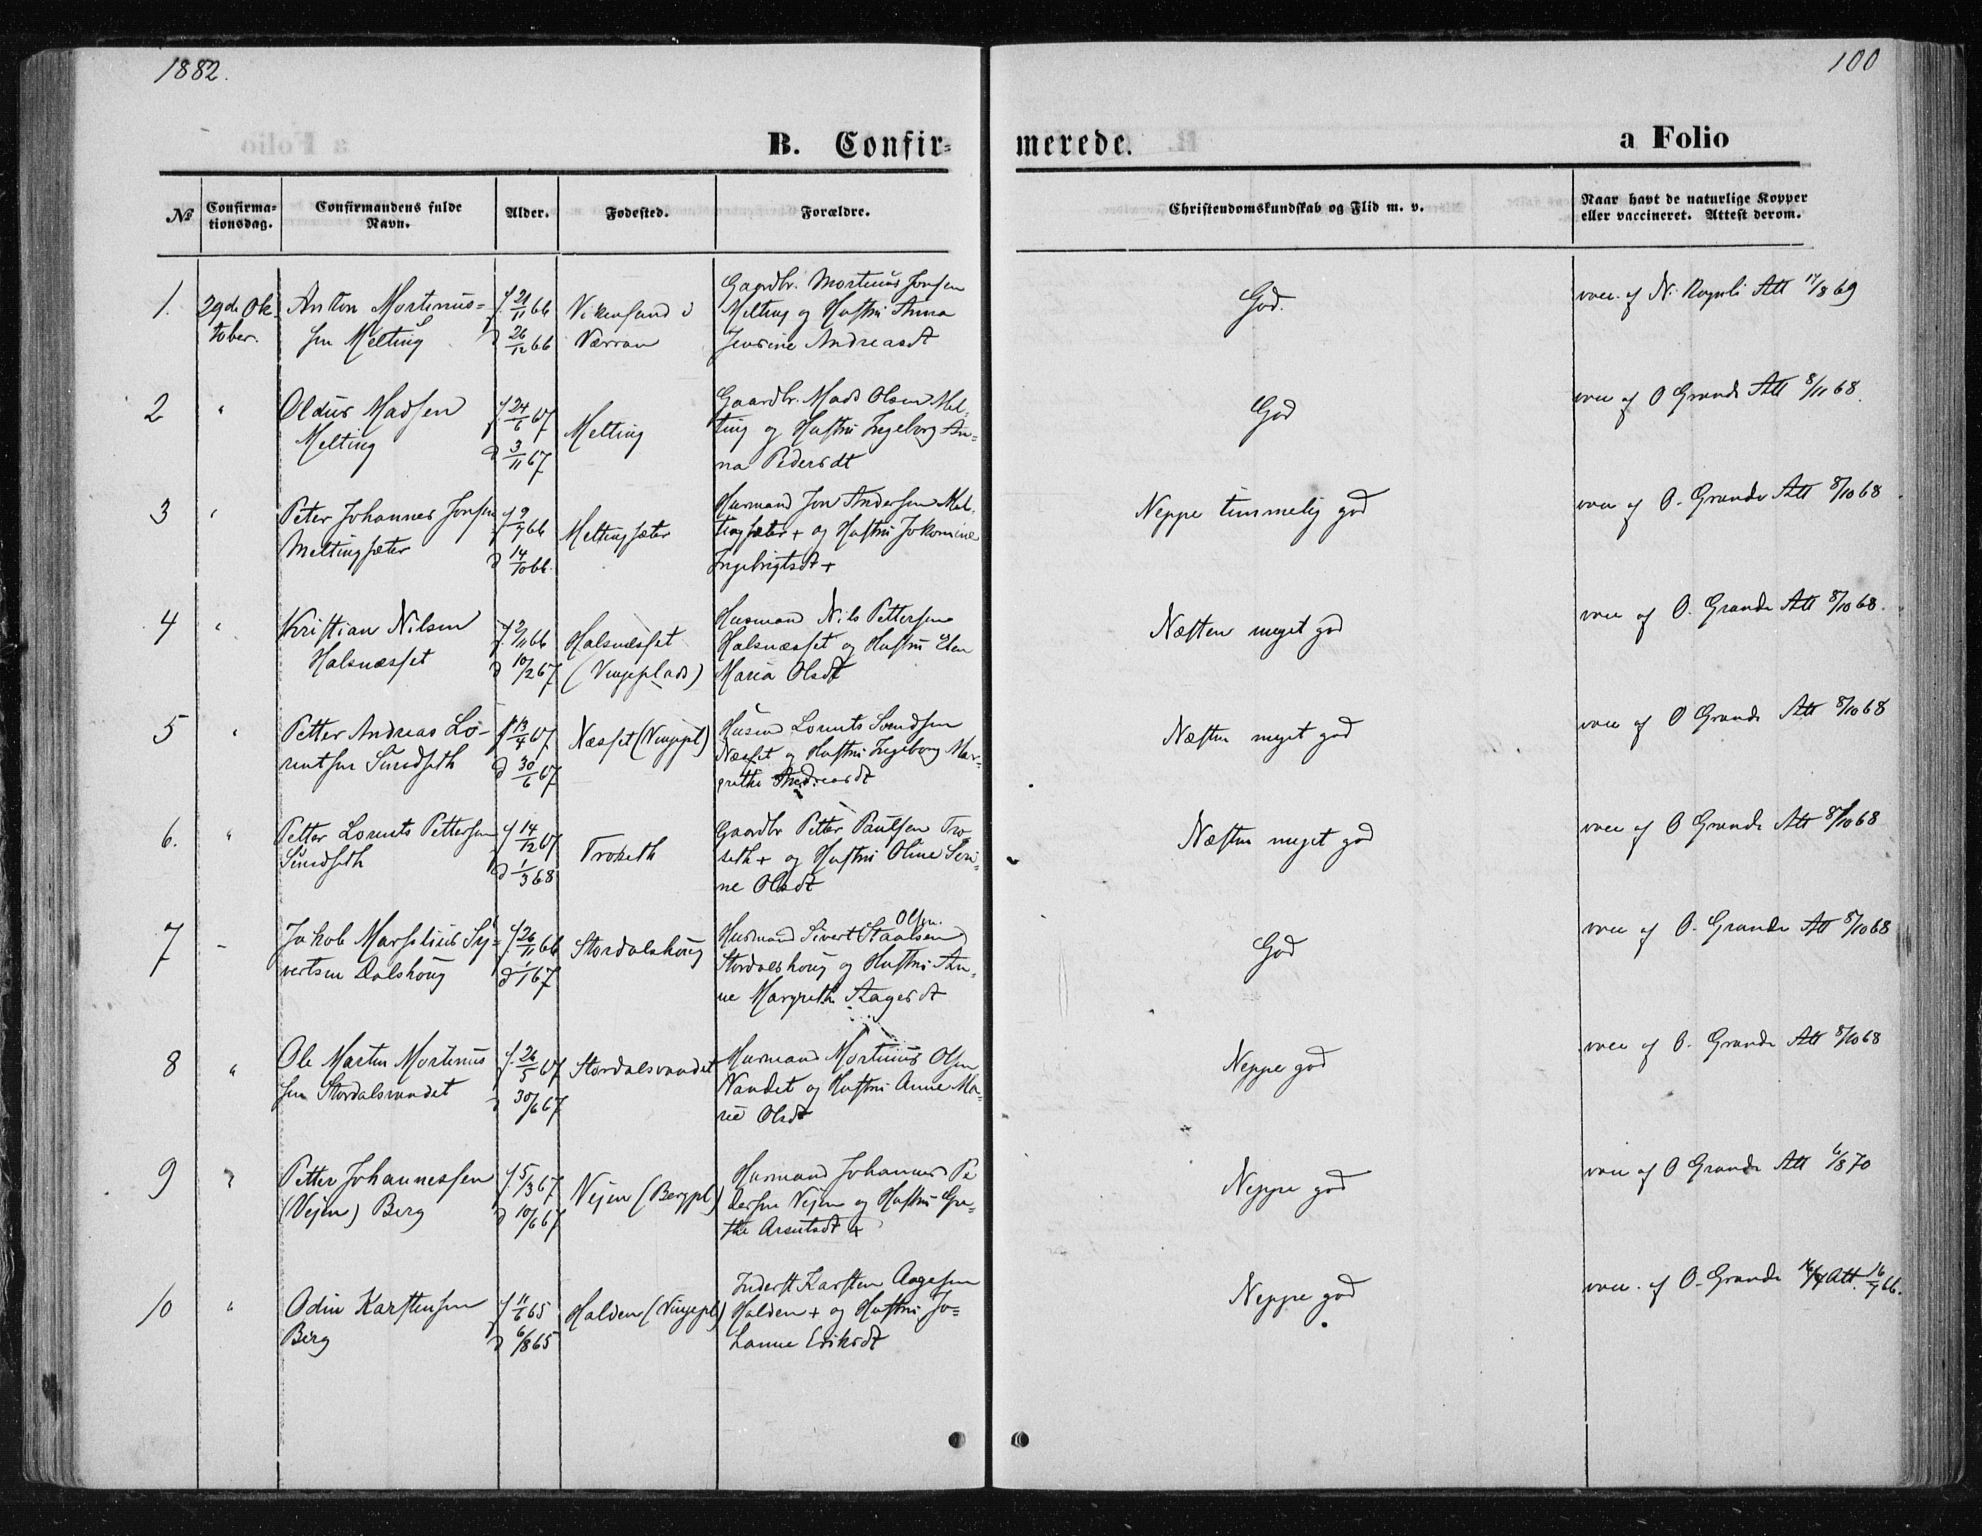 1882.
100
B. Confir-
merede.
a Folio
No
Confirma-
tionsdag.
Confirmandens fulde
Navn.
Alder.
Fødested.
Forældre.
Christendomskundskab og Flid m. v.
Naar havt de naturlige Kopper
eller vaccineret. Attest derom.
1.
29de Ok-
tober.
Anton Mortinus-
sen Melting
f. 21/11 66
d 26/12 66
Vikensund i
Værran
Gaardbr. Mortinus Jonsen
Melting og Hustru Anna
Jensine Andreasdt
God.
vacc. af N. Rognli Att 17/8 69
2
"
Oldus Madsen
Melting
f. 24/6 67
d 3/11 67
Melting
Gaardbr. Mads Olsen Mel-
ting og Hustru Ingeborg An-
na Pedersdt
God
vacc af O Grande Att 8/11 68.
3
"
Peter Johannes Jonsen
Meltingsæter
f 2/7 66
d 14/10 66.
Meltingsæter
Husmand Jon Andersen Mel-
tingsæter + og Hustru Jokomine
Ingebrigtsdt +
Neppe temmelig god
vacc af O. Grande Att 8/10 68
4
"
Kristian Nilsen
Halsnæsset
f. 2/11 66
d 10/2 67
Halsnæsset
(Vingeplads)
Husmand Nils Pettersen
Halsnæsset og Hustru Elen
Maria Olsdt
Næsten meget god
vacc af O. Grande Att 8/10 68.
5
"
Petter Andreas Lo-
rntsen Sundseth
f 13/4 67
d 30/6 67
Næsset (Vingepl)
Husm Lornts Svendsen
Næsset og Hustru Ingeborg Mar-
grethe Andreasdt
Næsten meget god
vacc af O Grande Att 8/10 68
6.
"
Petter Lornts Pettersen
Sundseth
f 14/12 67
d 1/3 68
Troseth
Gaardbr Petter Paulsen Tro-
seth + og Hustru Oline Seri-
ne Olsdt
Næsten meget god
vacc af O Grande Att 8/10 68
7
-
Jakob Marselius Sy-
vertsen Dalshoug
f. 26/11 66
d 1/1 67
Stordalshoug
Olsen.
Husmand Sivert Staalsen
Stordalshoug og Hustru An-
ne Margreth Aagesdt
God
vacc af O. Grande Att 8/10 68
8
"
Ole Martin Mortinus
sen Stordalsvandet
f. 26/5 67
d 30/6 67
Stordalsvandet
Husmand Mortinus Olsen
Vandet og Hustru Anne Ma-
rie Olsdt
Neppe god
vacc af O. Grande Att 8/10 68
9
"
Petter Johannessen
(Vejen) Berg
f 5/3 67
d 10/6 67
Vejen (Bergpl)
Husmand Johannes Pe
dersen Vejen og Hustru Gre-
the Arentsdt +
Neppe god
vacc af O Grande Att 6/8 70
10
"
Odin Karstensen
Berg
f 11/6 65
d 6/8 65
Halden (Vingepl)
Inderst Karsten Aagesen
Halden + og Hustru Jo-
hanne Eriksdt
Neppe god
vacc. af O. Grande Att. 16/7 66.